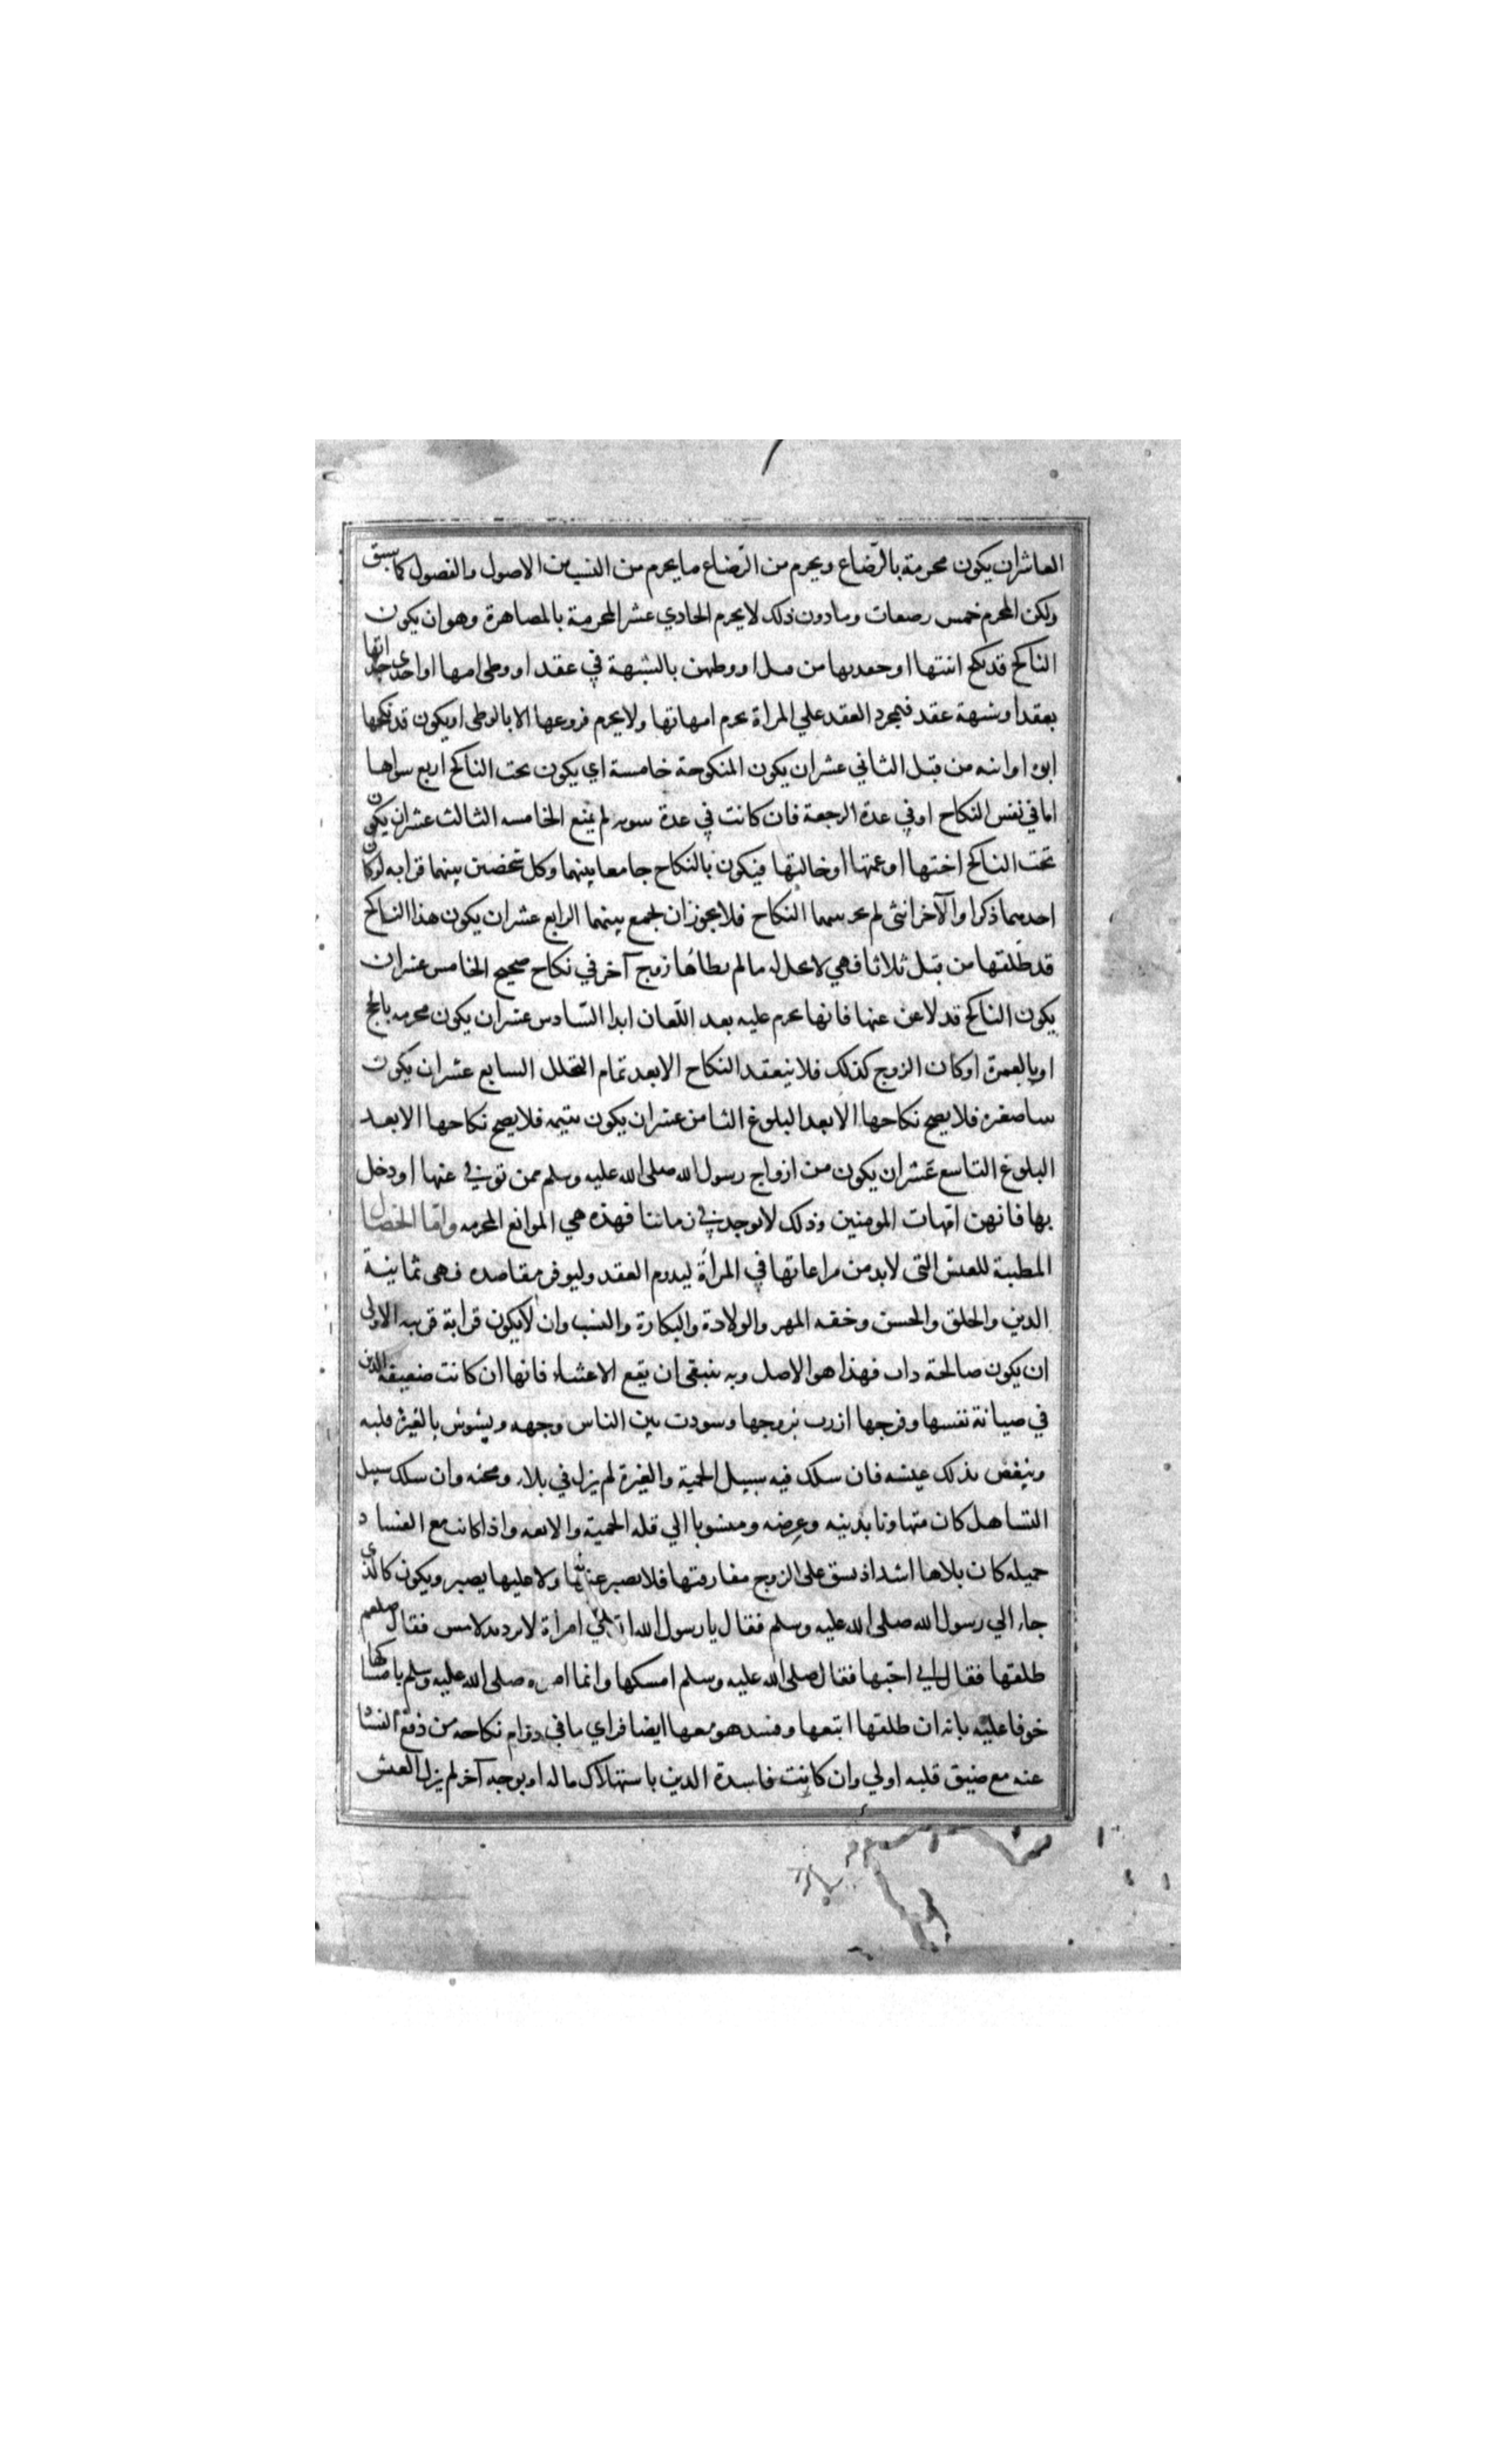 العاشر ان يكون محرمة بالرّضاع ويحرم من الرّضاع ما يحرم من النسب من الاصول والفصول كما سبق
ولكن المحرم خمس رضعات وما دون ذلك لا يحرم الحادي عشر المحرمية بالمصاهرة وهو ان يكون
الناكح قد نكح ابنتها او حفدتها من قبل او وطهن بالشبهة في عقد او وطى امها او احدى جداتها
بعقد او شبهة عقد فبمجرد العقد علي المراة يحرم امهاتها ولا يحرم فروعها الا بالوطى او يكون قد نكحها
ابوه او ابنه من قبل الثاني عشر ان يكون المنكوحة خامسة اي يكون تحت الناكح اربع سواها
اما في نفس النكاح او في عدة الرجعة فان كانت في عدة بينونه لم يمنع الخامسه الثالث عشر ان يكون
تحت الناكح اختها او عمتها او خالتها فيكون بالنكاح جامعا بينهما وكل شخصين بينهما قرابه لو كان
احدهما ذكرا والآخر انثى لم يجز بينهما النكاح فلا يجوز ان يجمع بينهما الرابع عشر ان يكون هذا الناكح
قد طلقها من قبل ثلاثا فهي لا تحل له ما لم يطاها زوج آخر في نكاح صحيح الخامس عشر ان
يكون الناكح قد لاعن عنها فانها تحرم عليه بعد اللّعان ابدا السّادس عشر ان يكون محرمه بالحج
او بالعمرة او كان الزوج كذلك فلا ينعقد النكاح الا بعد تمام التحلل السابع عشر ان يكون
ثيبا صغيره فلا يصح نكاحها الا بعد البلوغ الثامن عشر ان يكون يتيمه فلا يصح نكاحها الا بعد
البلوغ التاسع عشر ان يكون من ازواج رسول الله صلى الله عليه وسلم ممن توفي عنها او دخل
بها فانهن امّهات المومنين وذلك لا يوجد في زماننا فهذه هي الموانع المحرمه وامّا الخصال
المطيبة للعيش التى لا بد من مراعاتها في المراة ليدوم العقد وليوفر مقاصده فهى ثمانية
الدين والخلق والحسن وخفه المهر والولادة والبكارة والنسب وان لا يكون قرابة قريبه الاولى
ان يكون صالحة ذات فهذا هو الاصل وبه ينبغى ان يقع الاعتناء فانها ان كانت ضعيفه الدين
في صيانة نفسها وفرجها ازرت بزوجها وسودت بين الناس وجهه ويشوش بالغيرة قلبه
وينغص بذلك عيشه فان سلك فيه سبيل الحمية والغيرة لم يزل في بلاء ومحنه وان سلك سبيل
التساهل كان متهاونا بدينه وعرضه ومنسوبا الي قله الحمية والانفه واذا كانت مع الفساد
جميله كان بلاها اشد اذ يشق على الزوج مفارقتها فلا يصبر عنها ولا عليها يصبر ويكون كالذي
جاء الي رسول الله صلى الله عليه وسلم فقال يا رسول الله ان لي امراة لا ترد يد لامس فقال صلعم
طلقها فقال اني احبّها فقال صلى الله عليه وسلم امسكها وانما امره صلى الله عليه وسلم بامساكها
خوفا عليه بانه ان طلقها اتبعها وفسد هو معها ايضا فراي ما في دوام نكاحه من دفع الفساد
عنه مع ضيق قلبه اولي وان كانت فاسدة الدين باستهلاك ماله او بوجه آخر لم يزل العيش